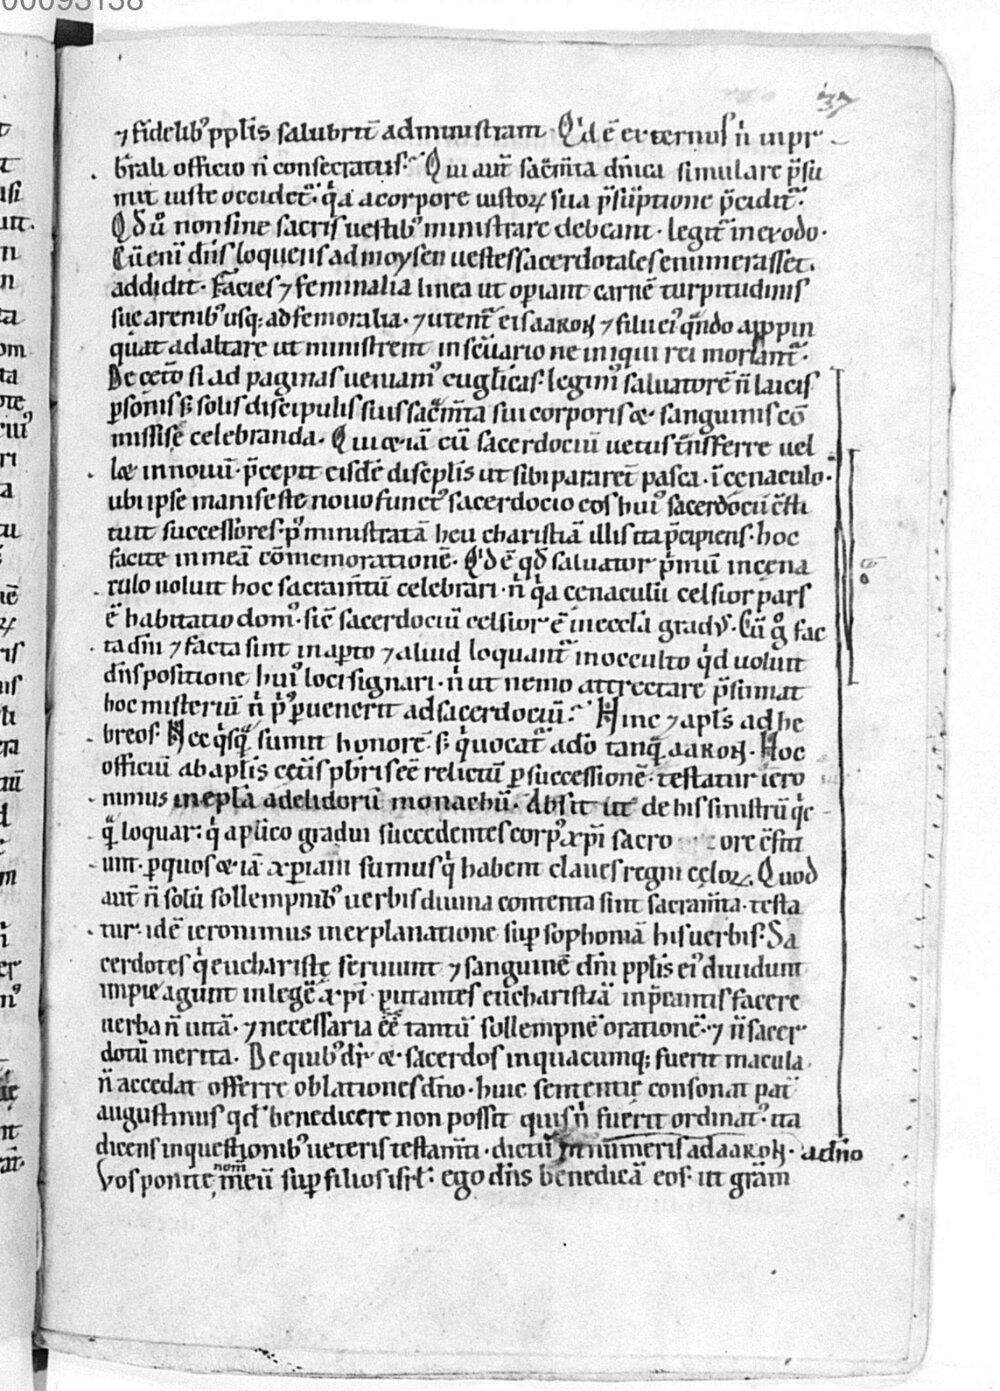 00093138
37
⁊ fidelibꝰ ppl̄is salubrit̄ administrant. Q'd ē externus n̄ in pr
b̄rali officio n̄ consecratus. Qui aut̄ sac̄m̄ta d̄nica simulare p̄su
mit iuste occidet̄. q̄a a corpore iustoꝝ sua p̄sūptione p̄cidit̄.
Qd ū non sine sacris uestibꝰ ministrare debeant. legit̄ in exodo.
Cū eni d̄ns loquens ad moysen uestes sacerdotales enumerasset.
addidit. Facies ⁊ feminalia linea ut op̄iant carnē turpitudinis
sue a renibꝰ usq; ad femoralia. ⁊ utent̄ eis aaron ⁊ filii eiꝰ q̄ndo appropin
quāt ad altare ut ministrent in sc̄uario ne iniqui rei moriant̄.
De cet̄o si ad paginas ueniamꝰ euḡlicas. legimꝰ saluatorē n̄ laicis
p̄sonis s; solis discipulis suis sac̄m̄ta sui corporis ⁊ sanguinis cō
missise celebranda. Qui ⁊ iā cū sacerdociū uetus t̄nsferre uel
let in nouū. p̄cepit eisdē disc̄plis ut sibi pararent pasca. ī cenaculo.
ubi ipse manifeste nouo functꝰ sacerdocio eos huiꝰ sacerdocii c̄sti
tuit successores. pꝰ ministratā heucharistiā illis ita p̄cipiens. hoc
facite in meā cōmemorationē. Q'd ē qd̄ saluator p̄mū in cena
culo uoluit hoc sacram̄tū celebrari. n̄ q̄a cenaculū celsior pars
ē habitatio domꝰ. sic̄ sacerdociū celsior ē in eccl̄a gradꝰ. Cū g̊ fac
ta d̄ni ⁊ facta sint in ap̄to ⁊ aliud loquant̄ in occulto q'd uoluit
d̄ns positione huiꝰ loci signari. n̄ ut nemo attrectare p̄sumat
hoc misteriū n̄ pꝰ puenerit ad sacerdociū. Hinc ⁊ apl̄s ad he
breos. Nec q̄sq̄ sumit honorē. s; q̄ uocat̄ a dō tanq̄ aaron. Hoc
officiū ab apl̄is cet̄is pb̄ris eē relictū p successionē. testatur iero
nimus in ep̄la ad elidorū monachū. Absit ut de his sinistrū q̄c
q̄ loquar: q̄ ap̄lico gradui succedentes corpꝰ xp̄i sacro ore c̄fici
unt. p quos ⁊ iā xp̄iani sumus q̄ habent claues regni celoꝝ. Quod
aut̄ n̄ solū sollempnibꝰ uerbis diuina contenta sint sacram̄ta. testa
tur. idē ieronimus in explanatione sup sophoniā his uerbis. Sa
cerdotes q̄ eucharistię seruiunt ⁊ sanguinē d̄ni ppl̄is eiꝰ diuidunt
impie agunt in legē xp̄i. putantes eucharistiā inp̄cantis facere
uerba n̄ uitā. ⁊ necessaria ēē tantū sollempnē orationē. ⁊ n̄ sacer
dotū merita. De quibꝰ dr̄ ⁊ sacerdos in quacumq; fuerit macula.
n̄ accedat offerre oblationes d̄no. huic sentencię consonat pat̄
augustinus qd̄ benedicere non possit quis n̄ fuerit ordinatꝰ. ita
dicens in questionibꝰ ueteris testam̄ti. dictū in numeris ad aaron. a d̄no
Vos ponite nom̄ meū sup filios isrl̄. ego d̄ns benedicā eos. ut gr̄am